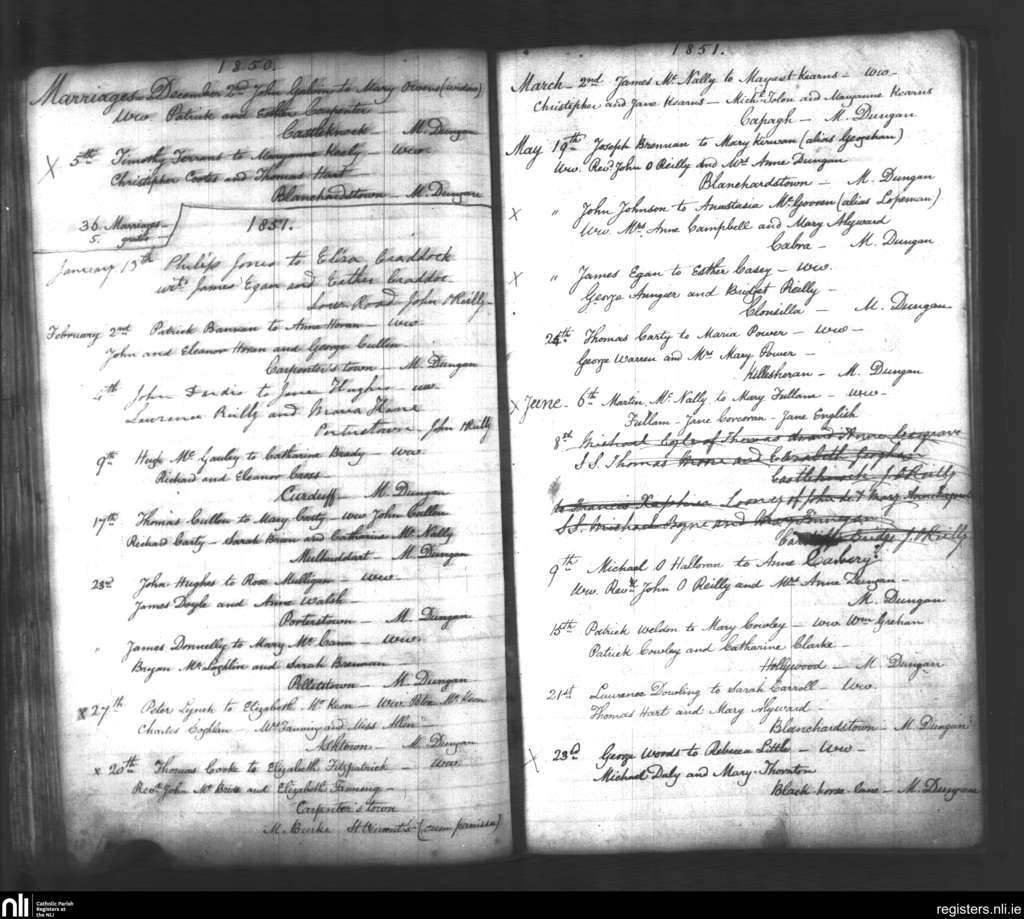 1850.
Marriages - December 2nd John Galvin to Mary Owens (widow)
Ww. Patrick and Esther Carpenter -
Castleknock - M. Dungan
X 5th Timothy Torrans to Maryanne Keely - Ww.
Christopher Coates and Thomas Hart
Blanchardstown - M. Dungan
36 Marriages -
5. gratis -
1851.
January 13th Philip Jones to Eliza Craddock
wit. James Egan and Esther Craddoc
Lower Road John O'Reilly -
February 2nd Patrick Bannan to Anne Horan - Ww.
John and Eleanor Horan and George Cullen
Carpenter's town - M. Dungan
4th John Dardis to Jane Hughes ww.
Lawrence Reilly and Maria Kane
Porterstown John O'Reilly
9th Hugh Mc Gauley to Catharine Brady - Ww.
Richard and Eleanor Cross
Curduff - M. Dungan
17th Thomas Cullen to Mary Carty - Ww John Cullen
Richard Carty - Sarah Brien and Catharine Mc Nally
Mulhuddart M. Dungan
23rd John Hughes to Rose Mulligan - Ww.
James Doyle and Anne Walsh -
Porterstown - M. Dungan
" James Donnelly to Mary Mc Cann - Ww.
Bryan Mc Loghlin and Sarah Brennan -
Pelletstown - M. Dungan
X 27th Peter Lynch to Elizabeth Mc Keon - Ww. Peter Mc Keon
Charles Coghlan - Mrs Fanning and Miss Allen
Ashtown - M. Dungan
x 20th Thomas Cooke to Elizabeth Fitzpatrick - Ww.
Revd. John Mc and Elizabeth Fanning -
Carpenter's town
M. Burke St Vincent's - (cum permissu)
1851.
March - 2nd James Mc Nally to Margaret Kearns - Ww -
Christopher and Jane Kearns - Mich. Tolon and Maryanne Kearns
Capagh - M. Dungan
May 19th Joseph Brennan to Mary Kirwan (alias Geoghan)
Ww. Revd. John O Reilly and Mrs Anne Dungan
Blanchardstown - M. Dungan
x " John Johnson to Anastasia Mc Govern (alias Lopeman)
Ww. Mrs. Anne Campbell and Mary Alyward
Cabra - M. Dungan
x " James Egan to Esther Casey - Ww.
George Aungier and Bridget Reilly -
Clonsilla - M. Dungan
24th Thomas Carty to Maria Power - Ww -
George Warren and Mrs Mary Power -
Killesheran - M. Dungan
x June - 6th Martin Mc Nally to Mary Fullam - Ww -
Fullam - Jane Corcoran - Jane English
8th Michael of Thomas and Anne Cosgrave
S.S. Thomas and Elizabeth
Castleknock J. O'Reilly
Francis Looney of John & Mary Anne
S.S. Michael Byrne and Mary Finnegan
Bridge J. O'Reilly
9th Michael O Halloran to Anne Carbery
Ww. Revd. John O Reilly and Mrs Anne Dungan -
M. Dungan
15th Patrick Weldon to Mary Cowley - Ww Wm Grehan
Patrick Cowley and Catharine Clarke -
Hollywood - M Dungan
21st Laurence Dowling to Sarah Carroll - Ww.
Thomas Hart and Mary Alyward -
Blanchardstown - M. Dungan
X 23rd George Woods to Rebecca Little - Ww -
Michael Daly and Mary Thornton
Black-horse-lane - M. Dungan
nli Catholic Parish
Registers at
the NLI
registers.nli.ie